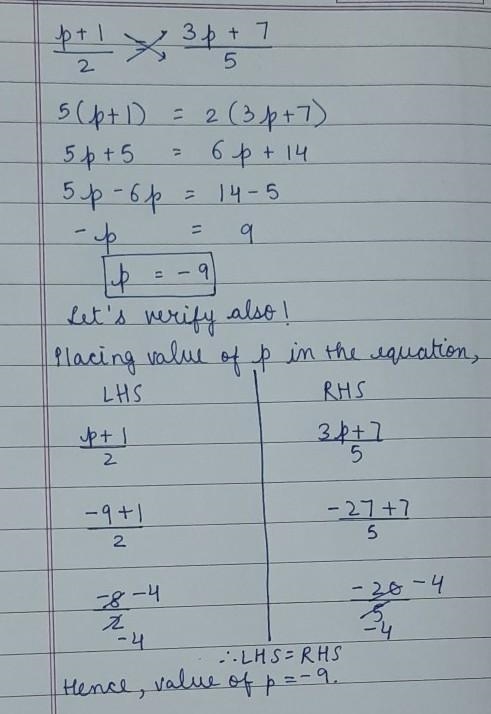 p+1/2 = 3p + 7/5
5(p+1) = 2(3p+7)
5p+5 = 6p+14
5p-6p = 14-5
-p = 9
p = -9
Let's verify also!
Placing value of p in the equation,
LHS RHS
p+1/2 3p+7/5
-9+1/2 -27+7/5
-8/2 -4 -20/5 -4
-4 -4
∴LHS=RHS
Hence, value of p=-9.